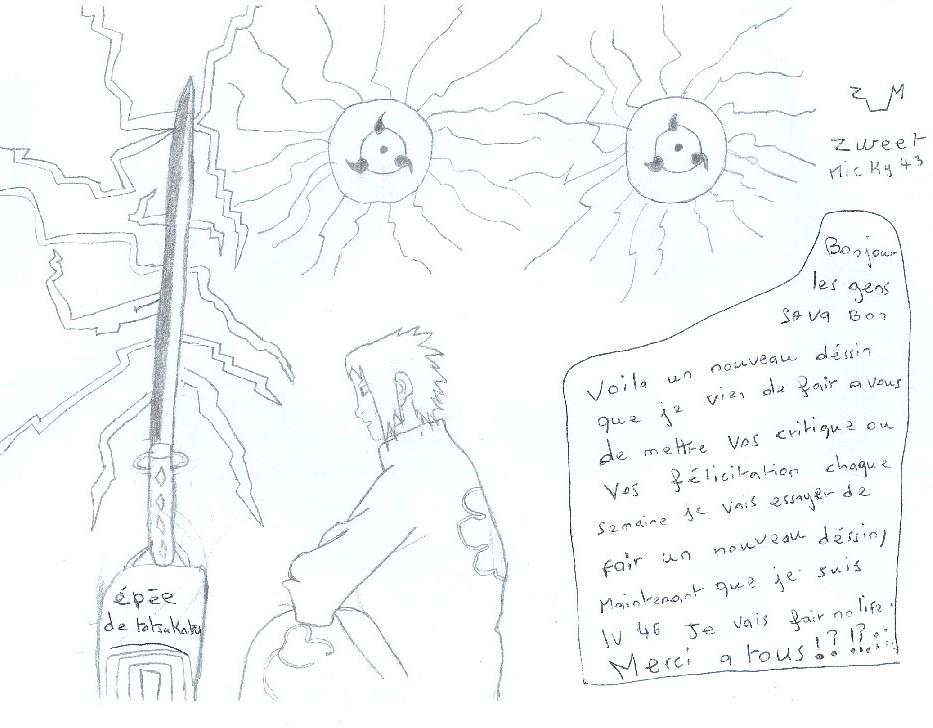 Z M
Zweet
Micky 43
Bonjour
les gens
SAVA Bon
Voila un nouveau déssin
que je vien de fair a vous
de mettre vos critique ou
Vos félicitation chaque
semaine je vais essayer de
fair un nouveau déssin,
Maintenant que je suis
lv 46 Je vais fair nolife.
Merci a tous !? !? :::
épée
de totsukatsu